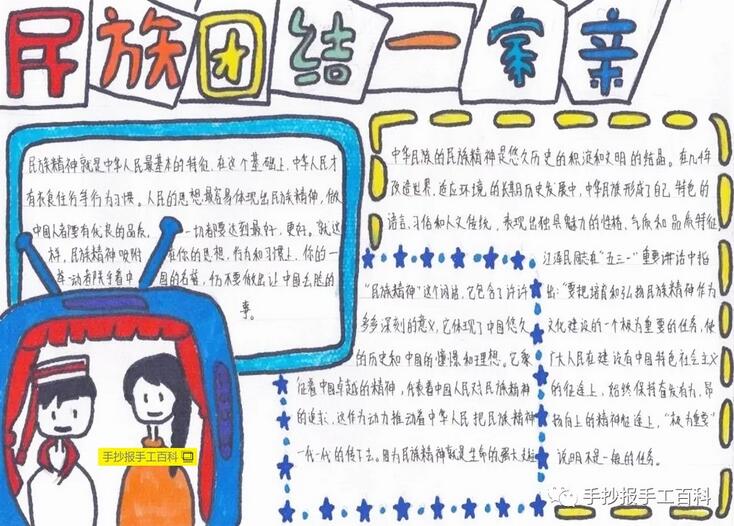 民族团结一家亲
民族精神就是中华人民最基本的特征，在这个基础上，中华人民才
有衣食住行等行为习惯。人民的思想最容易体现出民族精神，做
中国人都要有优良的品质，一切都要达到最好，更好。就这
样，民族精神吸附在你的思想，行为和习惯上，你的一
举一动都关乎着中国的名誉，仍不要做出让中国丢脸的
事。
中华民族的民族精神是悠久历史的积淀和文明的结晶。在几千年
改造世界，适应环境的长期历史发展中，中华民族形成了自己特色的
语言，习俗和人文传统，表现出独具魅力的性格、气质和品质特征
"民族精神"这个词语，它包含了许许
多多深刻的意义，它体现了中国悠久
的历史和中国的憧憬和理想。它象
征着中国卓越的精神，代表着中国人民对民族精神
的追求，这作为动力推动着中华人民把民族精神
一代一代的传了下去。因为民族精神就是生命的强大支柱
江泽民同志在"五三一"重要讲话中指
出："要把培育和弘扬民族精神作为
文化建设的一个极为重要的任务，使
广大人民在建设有中国特色社会主义
的征途上，始终保持奋发有为，昂
扬向上的精神征途上，"极为重要"
说明不是一般的任务。
手抄报手工百科
手抄报手工百科